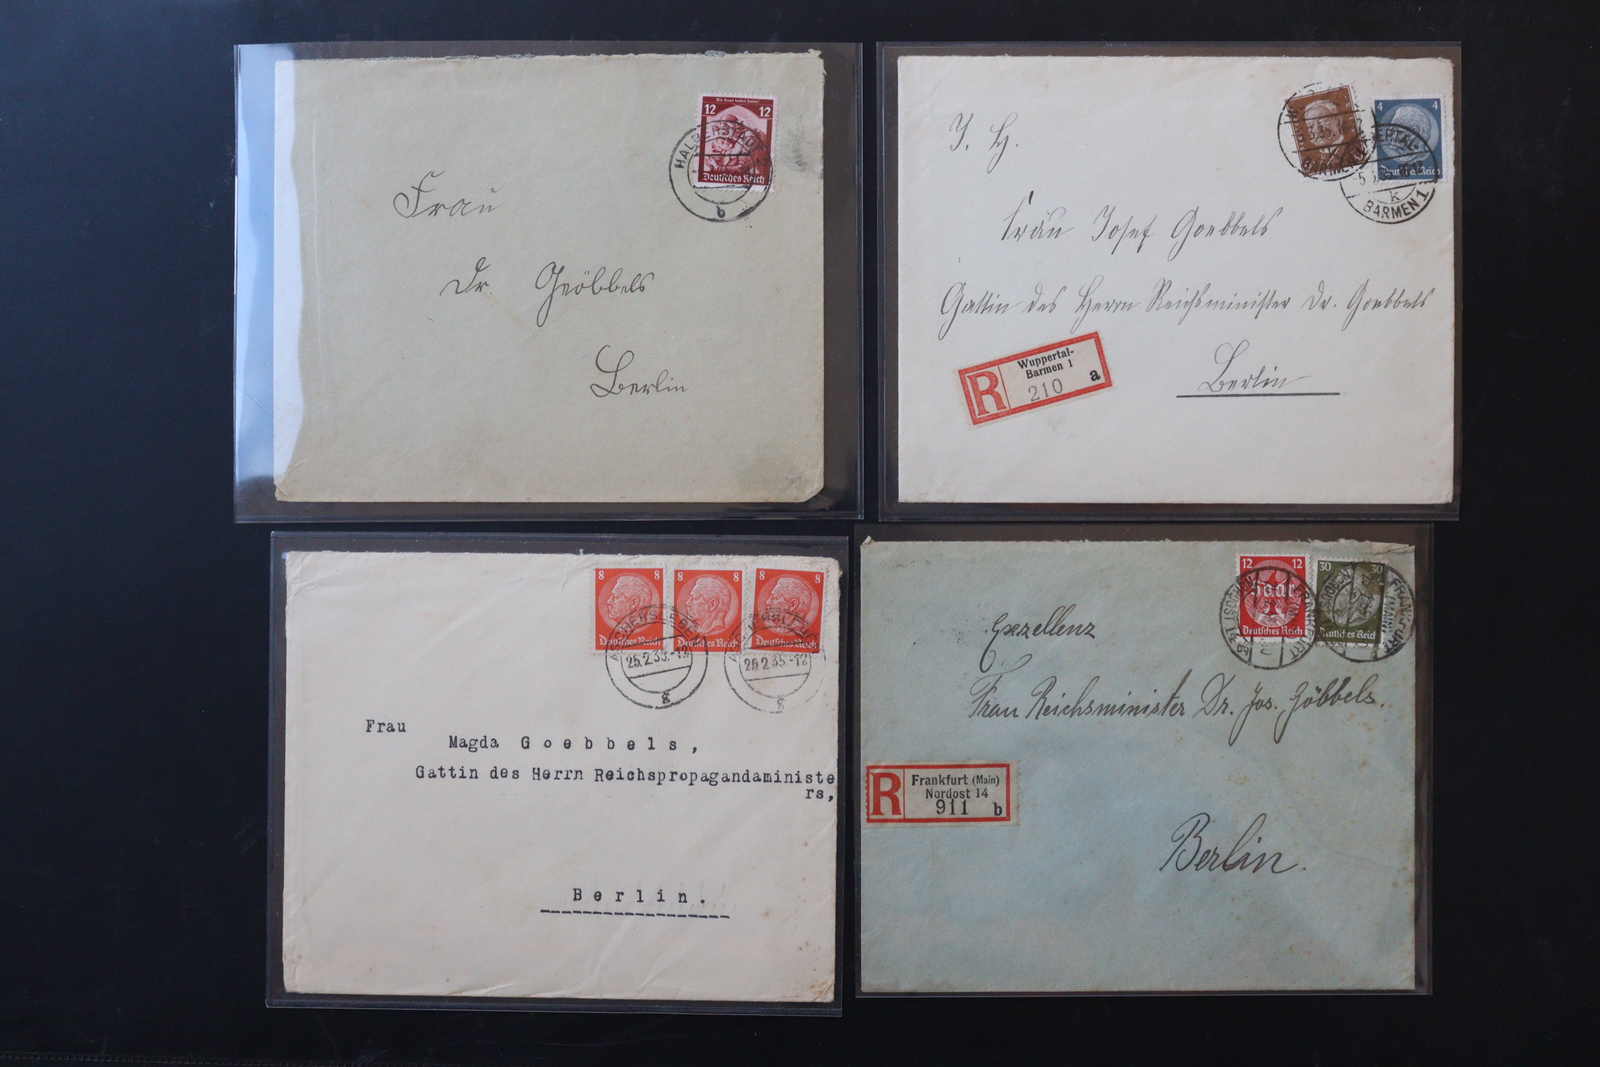 12 12
Deutsches Reich
HALBERSTADT
b
Frau
Dr. Goebbels
Berlin
4 4
BARMEN 1
k
I. H.
Frau Josef Goebbels
Gattin des Herrn Reichsminister Dr. Goebbels
Berlin
R
Wuppertal-
Barmen 1
210 a
8 8
8 8
8 8
Deutsches Reich
Deutsches Reich
Deutsches Reich
25.2.35.-12
25.2.35.-12
g
g
Frau
Magda Goebbels,
Gattin des Herrn Reichspropagandaministe
rs,
Berlin.
12 12
Saar
Deutsches Reich
30 30
FRANKFURT
Exzellenz
Frau Reichsminister Dr. Jos. Göbbels.
Berlin.
R
Frankfurt (Main)
Nordost 14
911 b